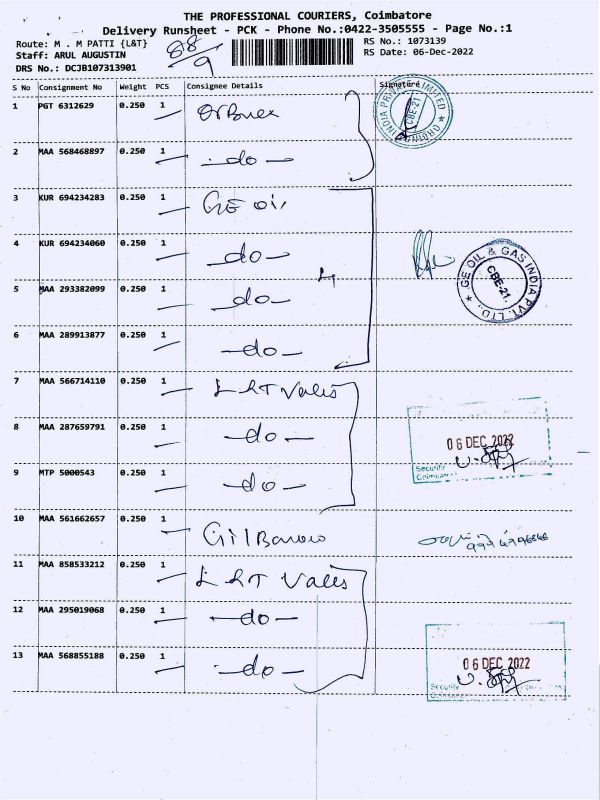 THE PROFESSIONAL COURIERS, Coimbatore
Delivery Runsheet - PCK - Phone No.:0422-3505555 - Page No.:1
Route: M . M PATTI {L&T}
RS No.: 1073139
Staff: ARUL AUGUSTIN
88/9
RS Date: 06-Dec-2022
DRS No.: DCJB107313901
S No Consignment No Weight PCS Consignee Details Signature
1 PGT 6312629 0.250 1
INDIA PRIVATE LIMITED CBE-21
2 MAA 568468897 0.250 1 -do-
3 KUR 694234283 0.250 1 GE oil
4 KUR 694234060 0.250 1 -do-
GE OIL & GAS INDIA PVT. LTD. CBE-21.
5 MAA 293382099 0.250 1 -do-
4
6 MAA 289913877 0.250 1 -do-
7 MAA 566714110 0.250 1 L&T Valves
8 MAA 287659791 0.250 1 -do-
06 DEC 2022
Security
9 MTP 5000543 0.250 1 -do-
10 MAA 561662657 0.250 1
11 MAA 858533212 0.250 1 L&T Valves
12 MAA 295019068 0.250 1 -do-
13 MAA 568855188 0.250 1 -do-
06 DEC 2022
Security